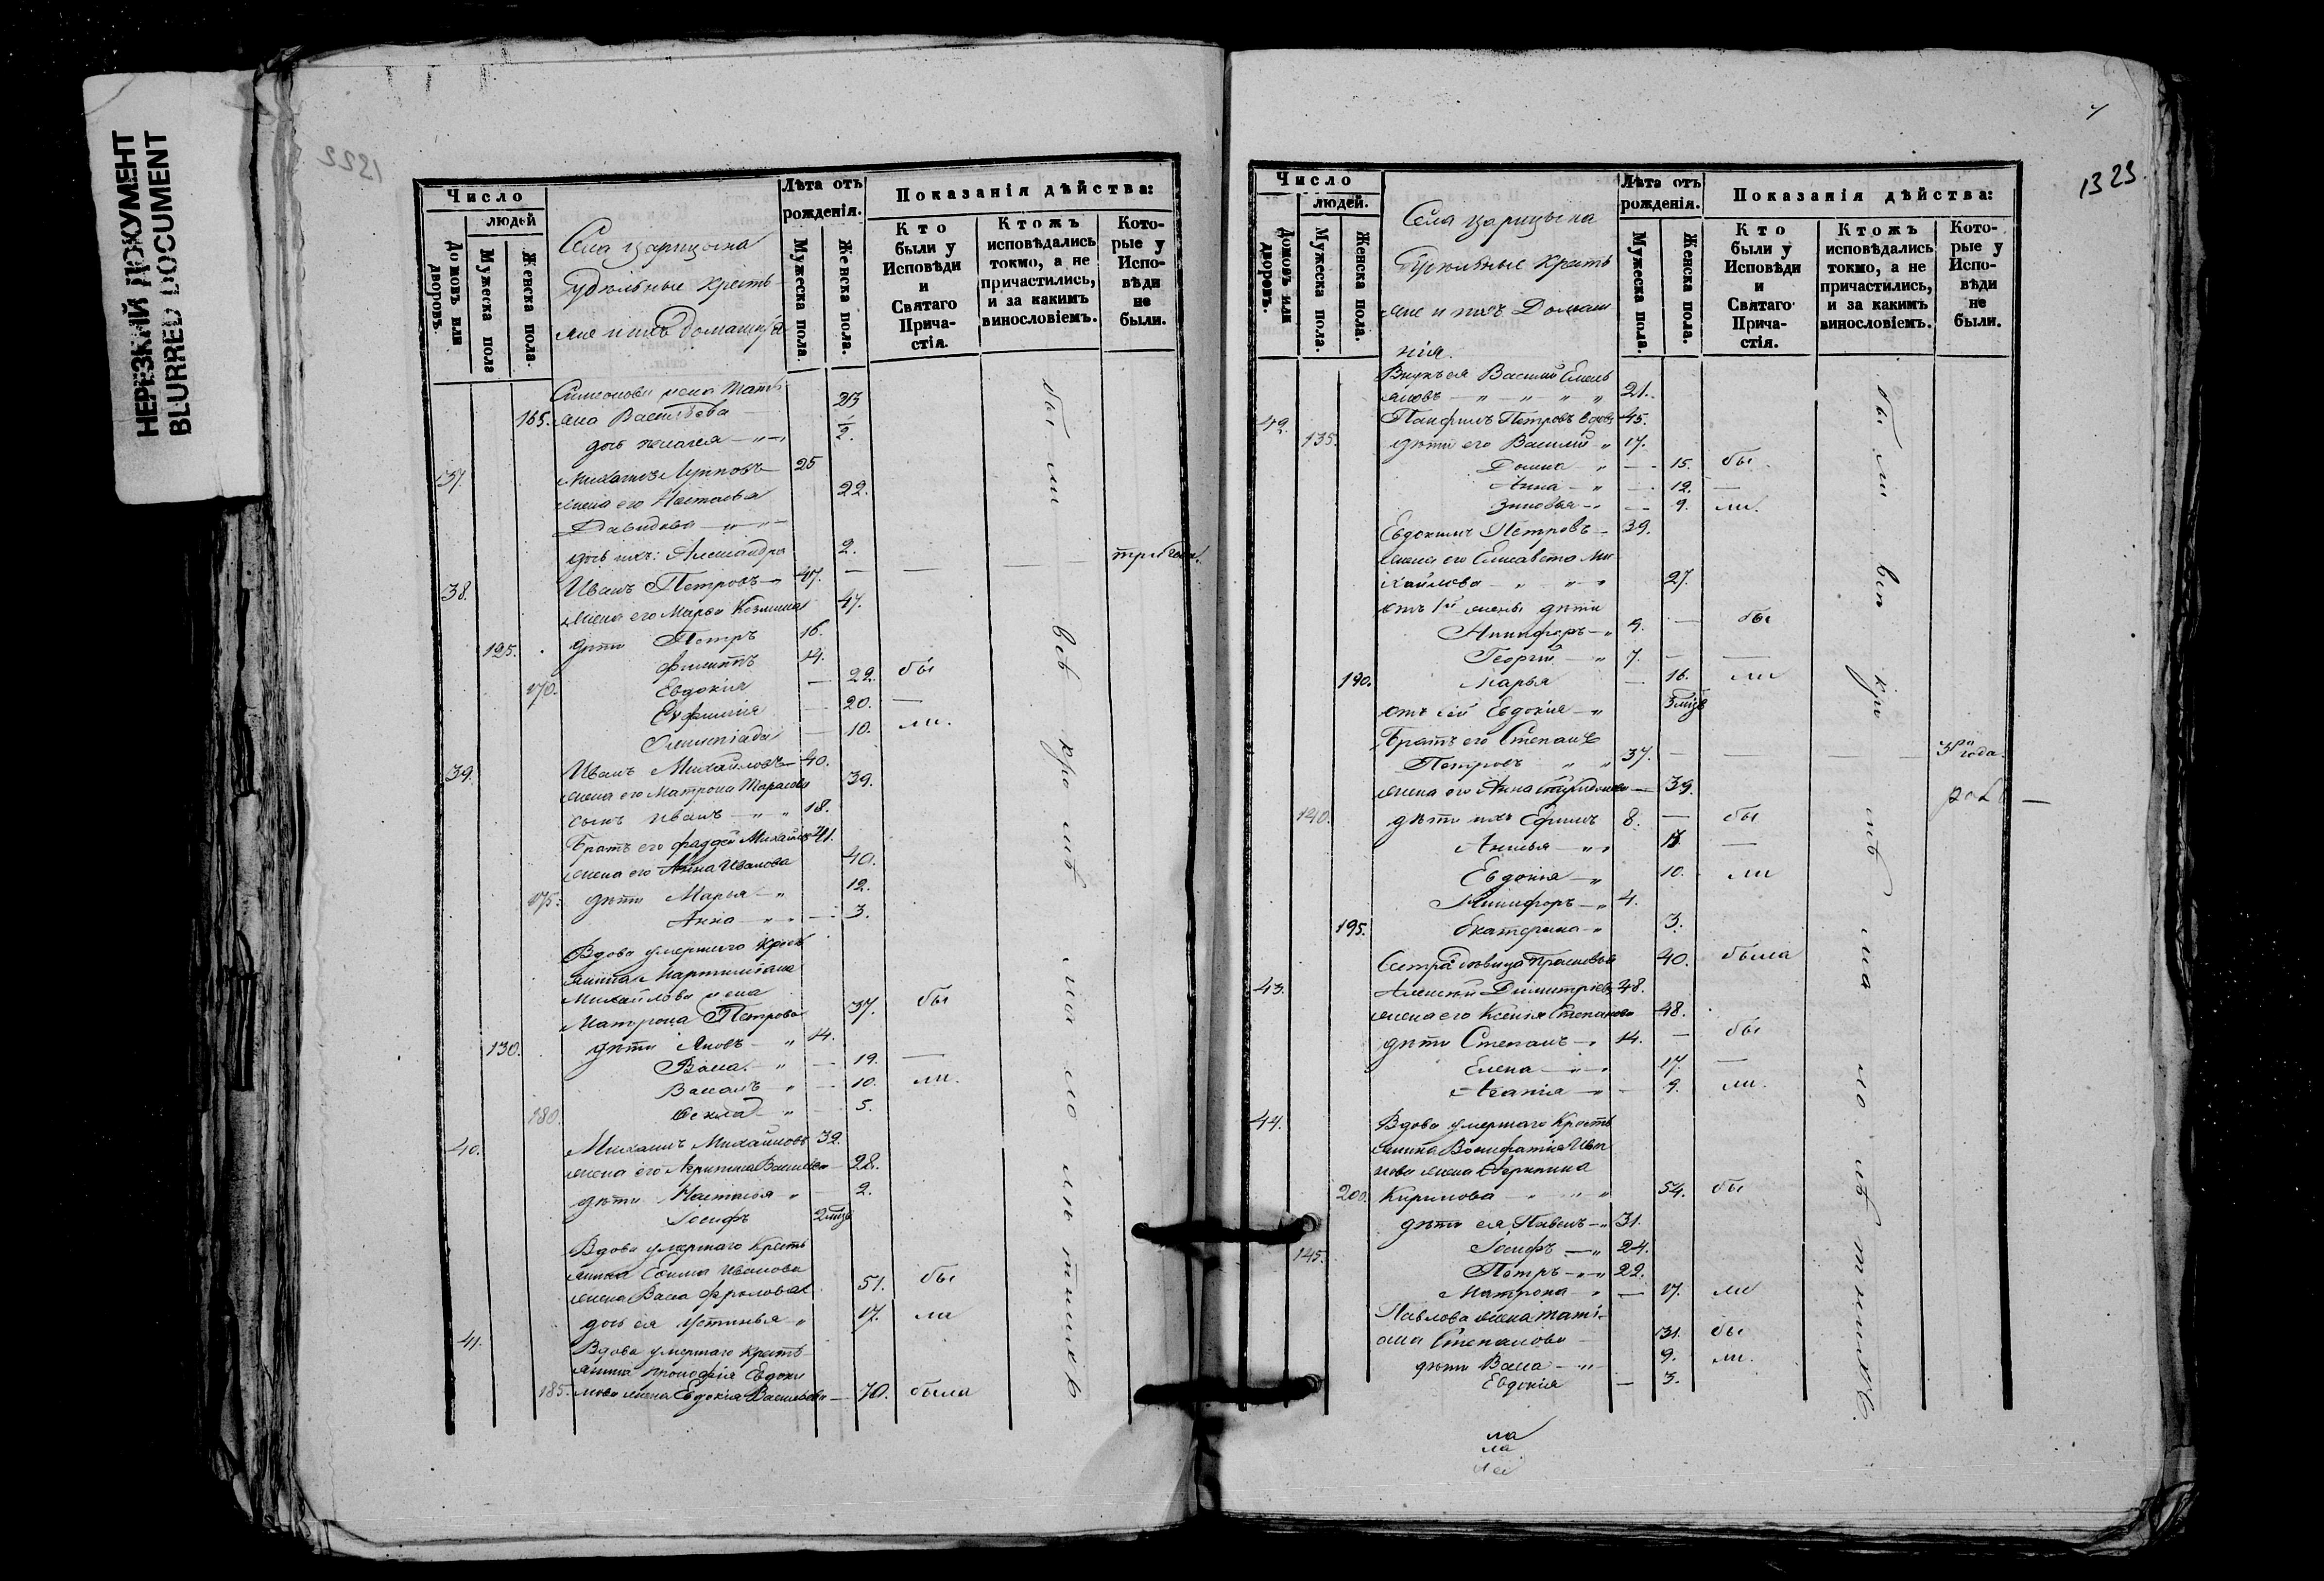 НЕРЕЗКИЙ ДОКУМЕНТ
BLURRED DOCUMENT
Число
людей
Домовъ или дворовъ.
Мужеска пола
Женска пола.
Села Царицына
удѣльные кресть
яне и ихъ домашнія
Лѣта отъ рожденія.
Мужеска пола.
Женска пола.
Показанія дѣйства:
Кто были у Исповѣди и Святаго Прича-стія.
Ктожъ исповѣдались токмо, а не причастились, и за какимъ винословіемъ.
Кото-рые у Испо-вѣди не были.
Симеонова жена Тать
165. яна Васильева 23
дочь 1/2.
37. 25
жена его Наталья 22.
Давидова
дочь ихъ: Александра 2.
38. Иванъ Петровъ 47. — — —
жена его Марья Козмина 47.
125. дѣти Петръ 16.
Филиппъ 14.
170. Евдокия — 22. бы
Евфимия — 20. —
Олимпіада — 10. ли.
39. Иванъ Михайловъ 40.
жена его Матрона Тарасова 39.
сынъ Иванъ 18.
Братъ его Фаддей Михайлов 41.
жена его Анна Иванова 40.
175. дѣти Марья 12.
Анна — 3.
Вдова умершаго крест
янина Мартиміана
Михайлова жена
Матрона Петрова 37. бы
130. дѣти Яковъ 14.
Васса — 19. —
— 10. ли.
180. Фекла — 5.
40. Михаилъ Михайловъ 32.
жена его Васильева 28.
дѣти Наталья 2.
Іосифъ 2 мцъ
Вдова умершаго Кресть
янина Ефима Иванова
жена Васса Фролова 51. бы
дочь ея Устинья 17. ли
41. Вдова умершаго кресть
янина Прокофія Евдоки
185. мова жена Евдокія Васильева — 70. была
бы ли всѣ кро мѣ ма ло лѣ тнихъ
1323.
Число
людей.
Домовъ или дворовъ.
Мужеска пола.
Женска пола.
Села Царицына
Удѣльные кресть
яне и ихъ Домаш
нія.
Лѣта отъ рожденія.
Мужеска пола.
Женска пола.
Показанія дѣйства:
Кто были у Исповѣди и Святаго Прича-стія.
Ктожъ исповѣдались токмо, а не причастились, и за какимъ винословіемъ.
Кото-рые у Испо-вѣди не были.
Внукъ ея Василий Емель
яновъ 21.
42. Панфилъ Петровъ вдовъ 45.
135. дѣти его Василий 17.
Домна — 15. бы
Анна — 12. —
Зиновья — 9. ли.
Евдокимъ Петровъ 39.
жена его Елисавета Ми
хайлова 27.
отъ 1й жены дѣти
Никифоръ 9. — бы
Георгій 7. — —
190. Марья — 16. ли
отъ сей Евдокія 3 мцъ
Братъ его Степанъ
Петровъ 37. — — — 3ри года.
жена его Анна Спиридонова — 39.
140. дѣти ихъ Ефимъ 8. — бы
—
Евдокія 10. ли
Никифоръ 4.
195. Екатерина 3.
Сестра девица Прасковья 40. была
43. Алексѣй Димитріевъ 48.
жена его Ксенія Степанова 48.
дѣти Степанъ 14. — бы
Елена 17. —
Агапія — 9. ли.
44. Вдова умершаго Кресть
янина Вонифатія Ива
нова жена
200. Кирилова 54. бы
дѣти ея Павелъ 31.
145. Іосифъ 24.
Петръ 22.
Матрона — 17. ли
Павлова жена Тати
ана Степанова 31. бы
дѣти Васса 9. ли.
Евдокія — 3.
бы ли всѣ кро мѣ ма ло лѣ тнихъ.
ла
ла